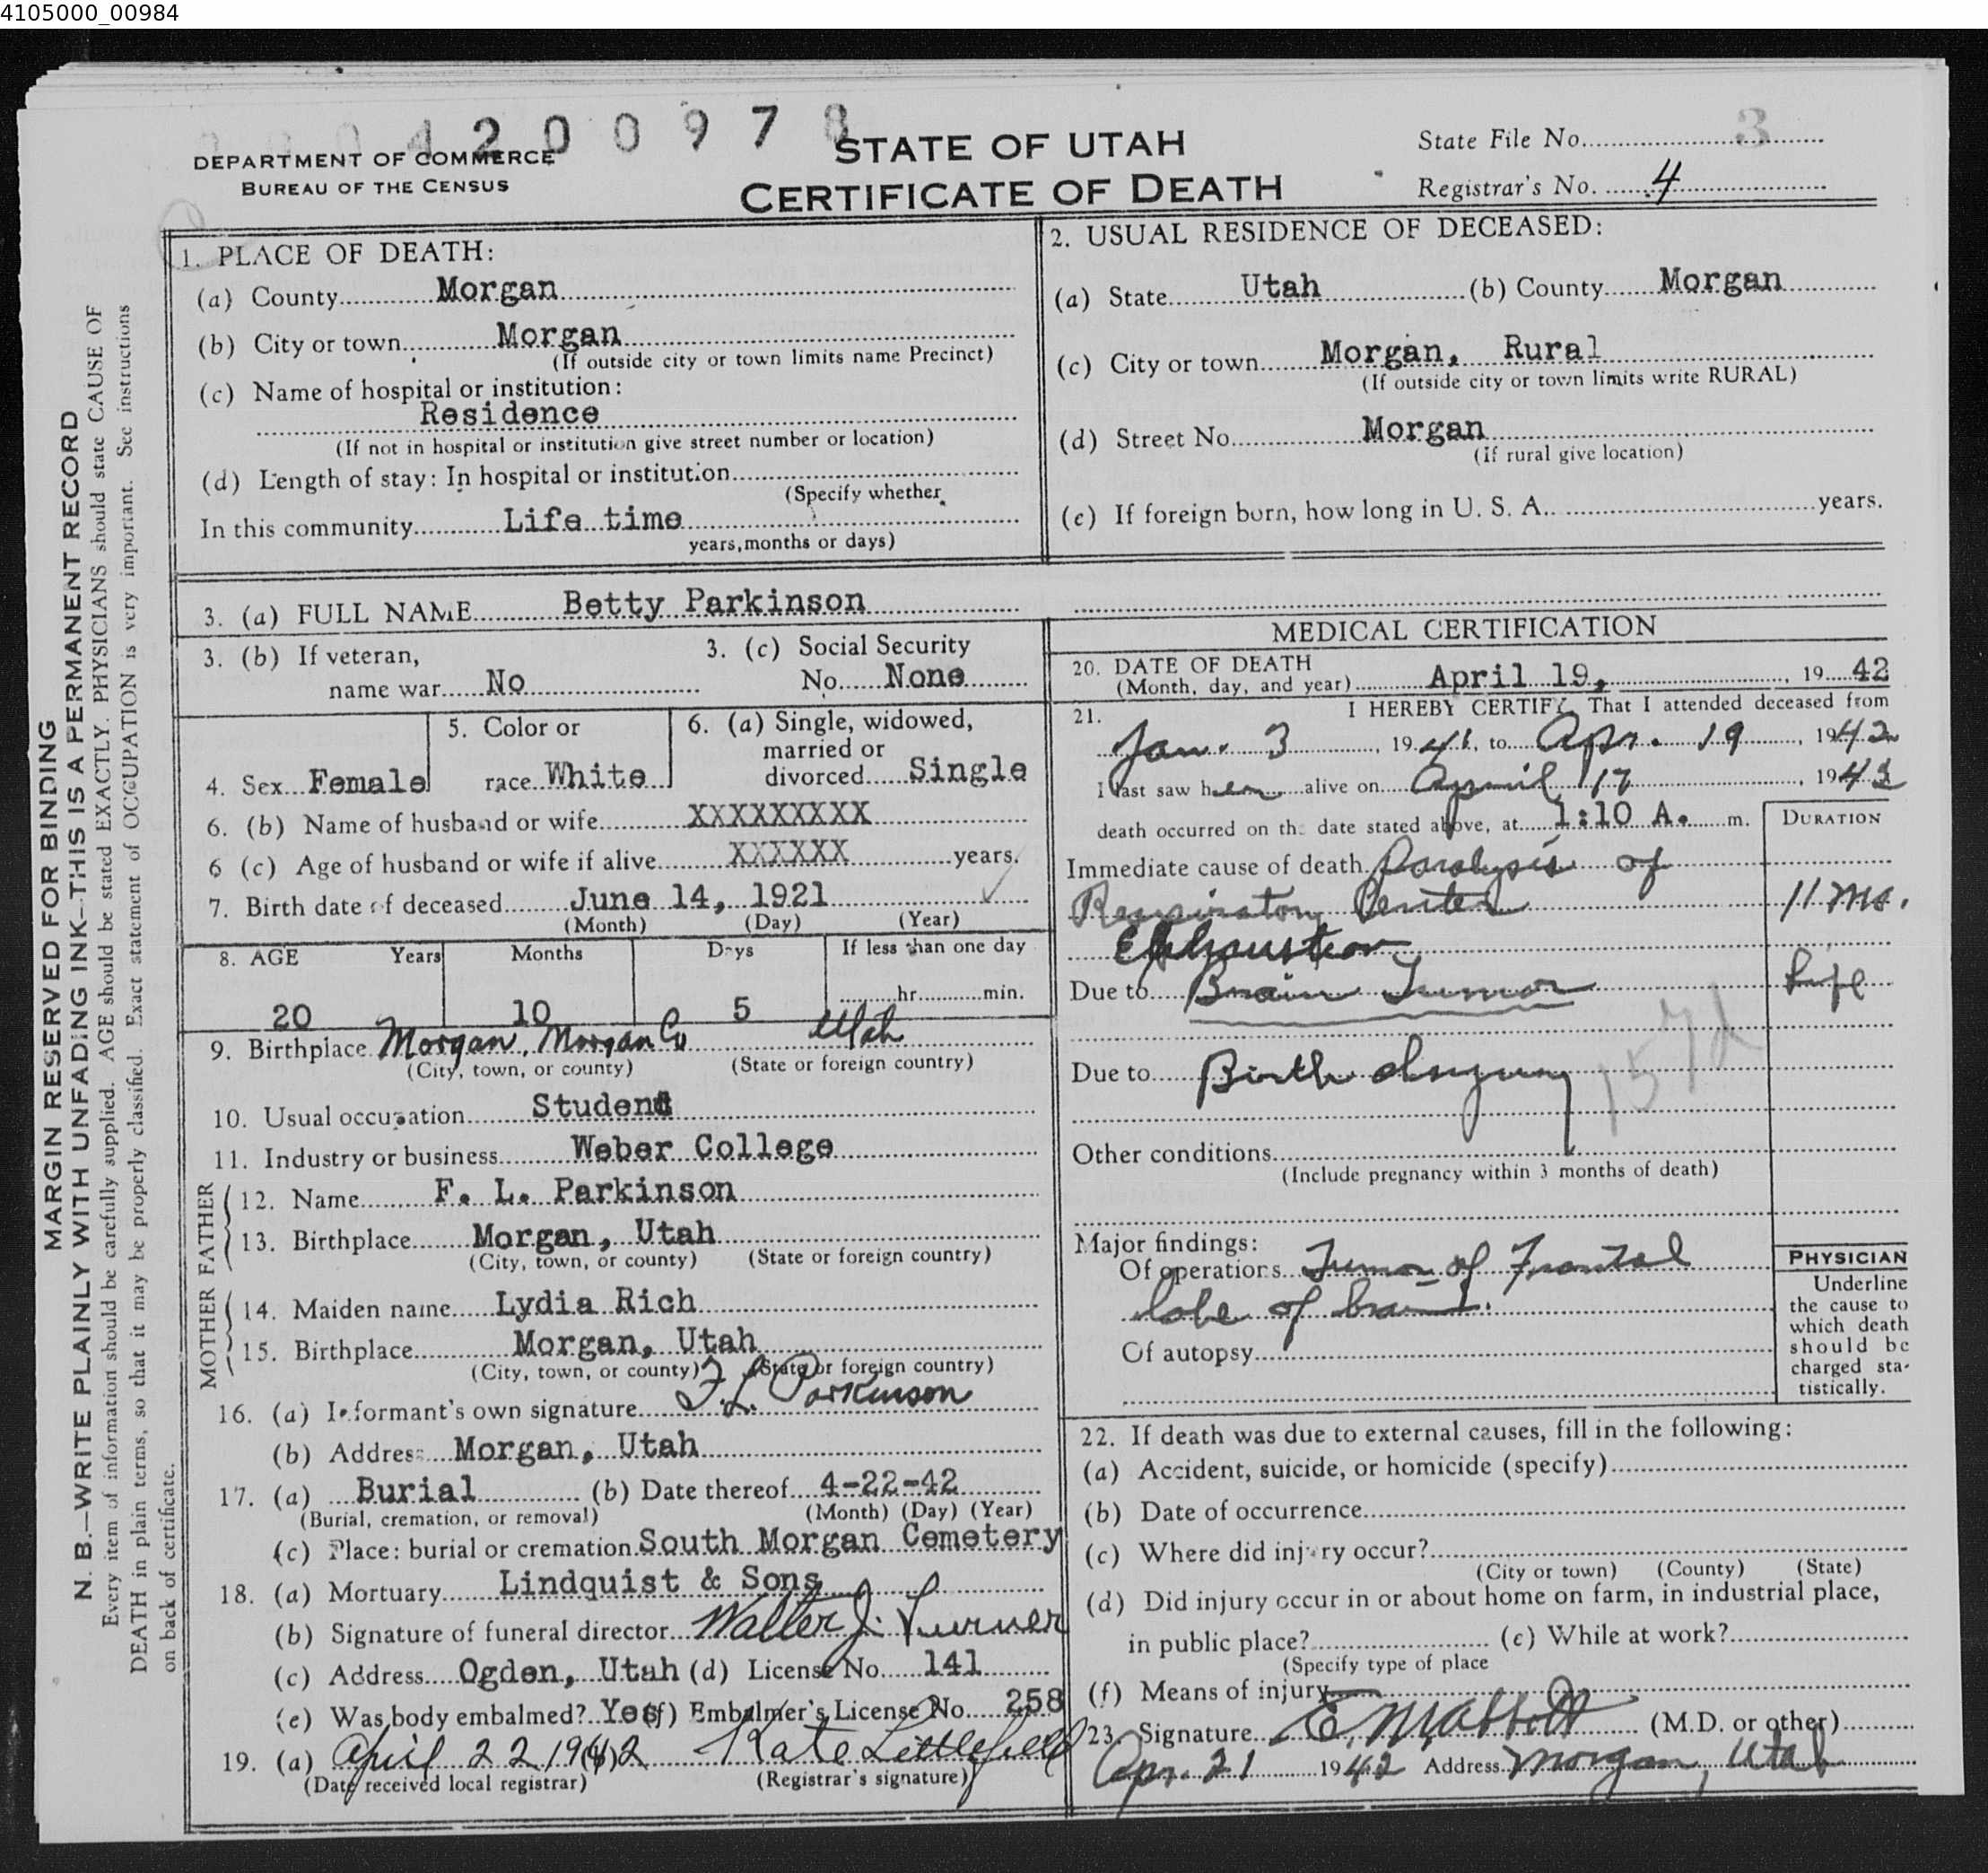 4105000_00984
4 2 0 0 9 7 8
DEPARTMENT OF COMMERCE
BUREAU OF THE CENSUS
STATE OF UTAH
CERTIFICATE OF DEATH
State File No. 3
Registrar's No. 4
MARGIN RESERVED FOR BINDING
N. B.—WRITE PLAINLY WITH UNFADING INK—THIS IS A PERMANENT RECORD
Every item of information should be carefully supplied. AGE should be stated EXACTLY. PHYSICIANS should state CAUSE OF
DEATH in plain terms, so that it may be properly classified. Exact statement of OCCUPATION is very important. See instructions
on back of certificate.
1. PLACE OF DEATH:
(a) County Morgan
(b) City or town Morgan
(If outside city or town limits name Precinct)
(c) Name of hospital or institution:
Residence
(If not in hospital or institution give street number or location)
(d) Length of stay: In hospital or institution
(Specify whether
In this community Life time
years, months or days)
2. USUAL RESIDENCE OF DECEASED:
(a) State Utah (b) County Morgan
(c) City or town Morgan, Rural
(If outside city or town limits write RURAL)
(d) Street No. Morgan
(If rural give location)
(e) If foreign born, how long in U. S. A. years.
3. (a) FULL NAME Betty Parkinson
3. (b) If veteran,
name war No
3. (c) Social Security
No. None
4. Sex Female
5. Color or
race White
6. (a) Single, widowed,
married or
divorced Single
6. (b) Name of husband or wife XXXXXXXXX
6 (c) Age of husband or wife if alive XXXXXX years.
7. Birth date of deceased June 14, 1921
(Month) (Day) (Year)
8. AGE Years Months Days If less than one day
20 10 5 hr. min.
9. Birthplace Morgan, Morgan Co Utah
(City, town, or county) (State or foreign country)
10. Usual occupation Student
11. Industry or business Weber College
FATHER
12. Name F. L. Parkinson
13. Birthplace Morgan, Utah
(City, town, or county) (State or foreign country)
MOTHER
14. Maiden name Lydia Rich
15. Birthplace Morgan, Utah
(City, town, or county) (State or foreign country)
16. (a) Informant's own signature F. L. Parkinson
(b) Address Morgan, Utah
17. (a) Burial (b) Date thereof 4-22-42
(Burial, cremation, or removal) (Month) (Day) (Year)
(c) Place: burial or cremation South Morgan Cemetery
18. (a) Mortuary Lindquist & Sons
(b) Signature of funeral director Walter J. Turner
(c) Address Ogden, Utah (d) License No. 141
(e) Was body embalmed? Yes (f) Embalmer's License No. 258
19. (a) April 22 1942 (b) Kate Littlefield
(Date received local registrar) (Registrar's signature)
MEDICAL CERTIFICATION
20. DATE OF DEATH
(Month, day, and year) April 19, 19 42
21. I HEREBY CERTIFY, That I attended deceased from
Jan. 3, 1941, to Apr. 19, 1942
I last saw her alive on April 17, 1942
death occurred on the date stated above, at 1:10 A. m.
DURATION
Immediate cause of death Paralysis of
Respiratory Center 11 Mo.
Exhaustion
Due to Brain Tumor Life
Due to Birth Injury
157d
Other conditions
(Include pregnancy within 3 months of death)
Major findings:
Of operations Tumor of Frontal
lobe of brain.
Of autopsy
PHYSICIAN
Underline
the cause to
which death
should be
charged sta-
tistically.
22. If death was due to external causes, fill in the following:
(a) Accident, suicide, or homicide (specify)
(b) Date of occurrence
(c) Where did injury occur?
(City or town) (County) (State)
(d) Did injury occur in or about home on farm, in industrial place,
in public place? (e) While at work?
(Specify type of place
(f) Means of injury
23. Signature E. M. Abbott (M.D. or other)
Apr. 21 1942 Address Morgan, Utah